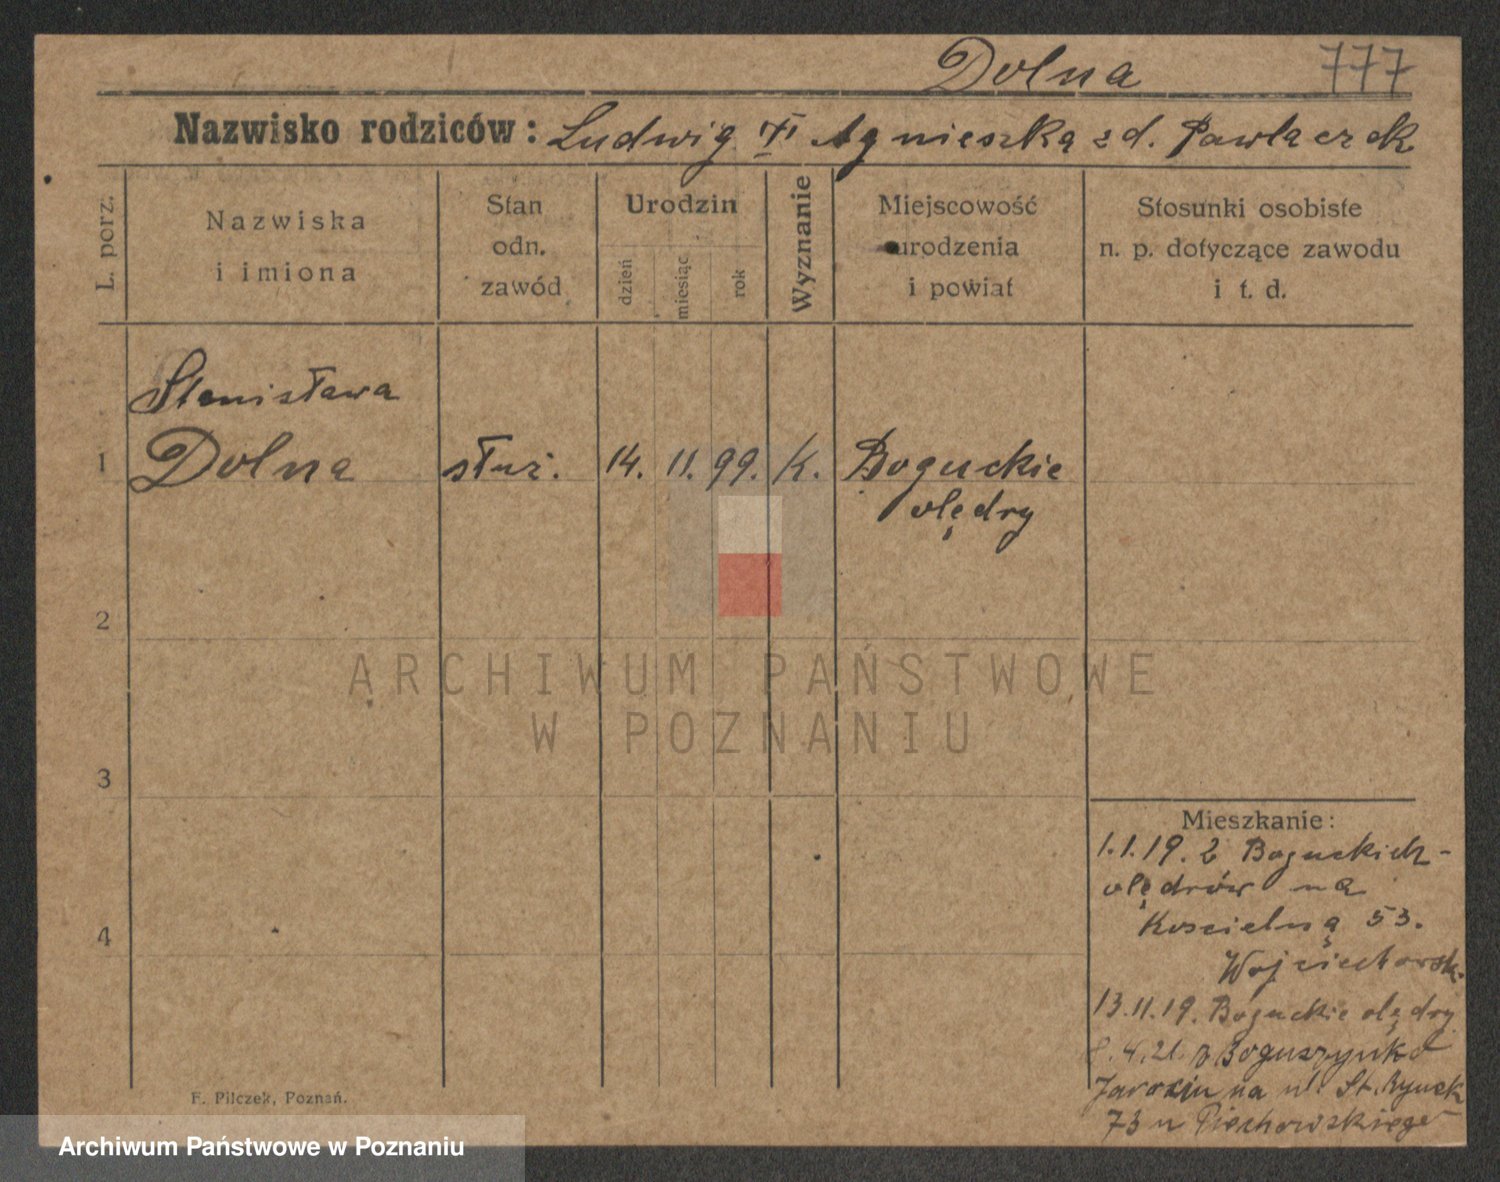 Dolna 777
Nazwisko rodziców: Ludwig i Agnieszka z d. Pawlaczak
L. porz.
Nazwiska
i imiona
Stan
odn.
zawód
Urodzin
dzień
miesiąc
rok
Wyznanie
Miejscowość
urodzenia
i powiat
Stosunki osobiste
n. p. dotyczące zawodu
i t. d.
Stanisława
1 Dolna służ. 14. 11. 99. K. Boguckie
olędry
2
ARCHIWUM PAŃSTWOWE
W POZNANIU
3
4
Mieszkanie:
1.1.19. z Boguckich-
olędrów na
Kościelną 53.
Wojciechowsk.
13.11.19. Boguckie olędry
4.21. z Boguszynka
Jarocin na ul. St. Rynek
73 u Piechowskiego
F. Pilczek, Poznań.
Archiwum Państwowe w Poznaniu